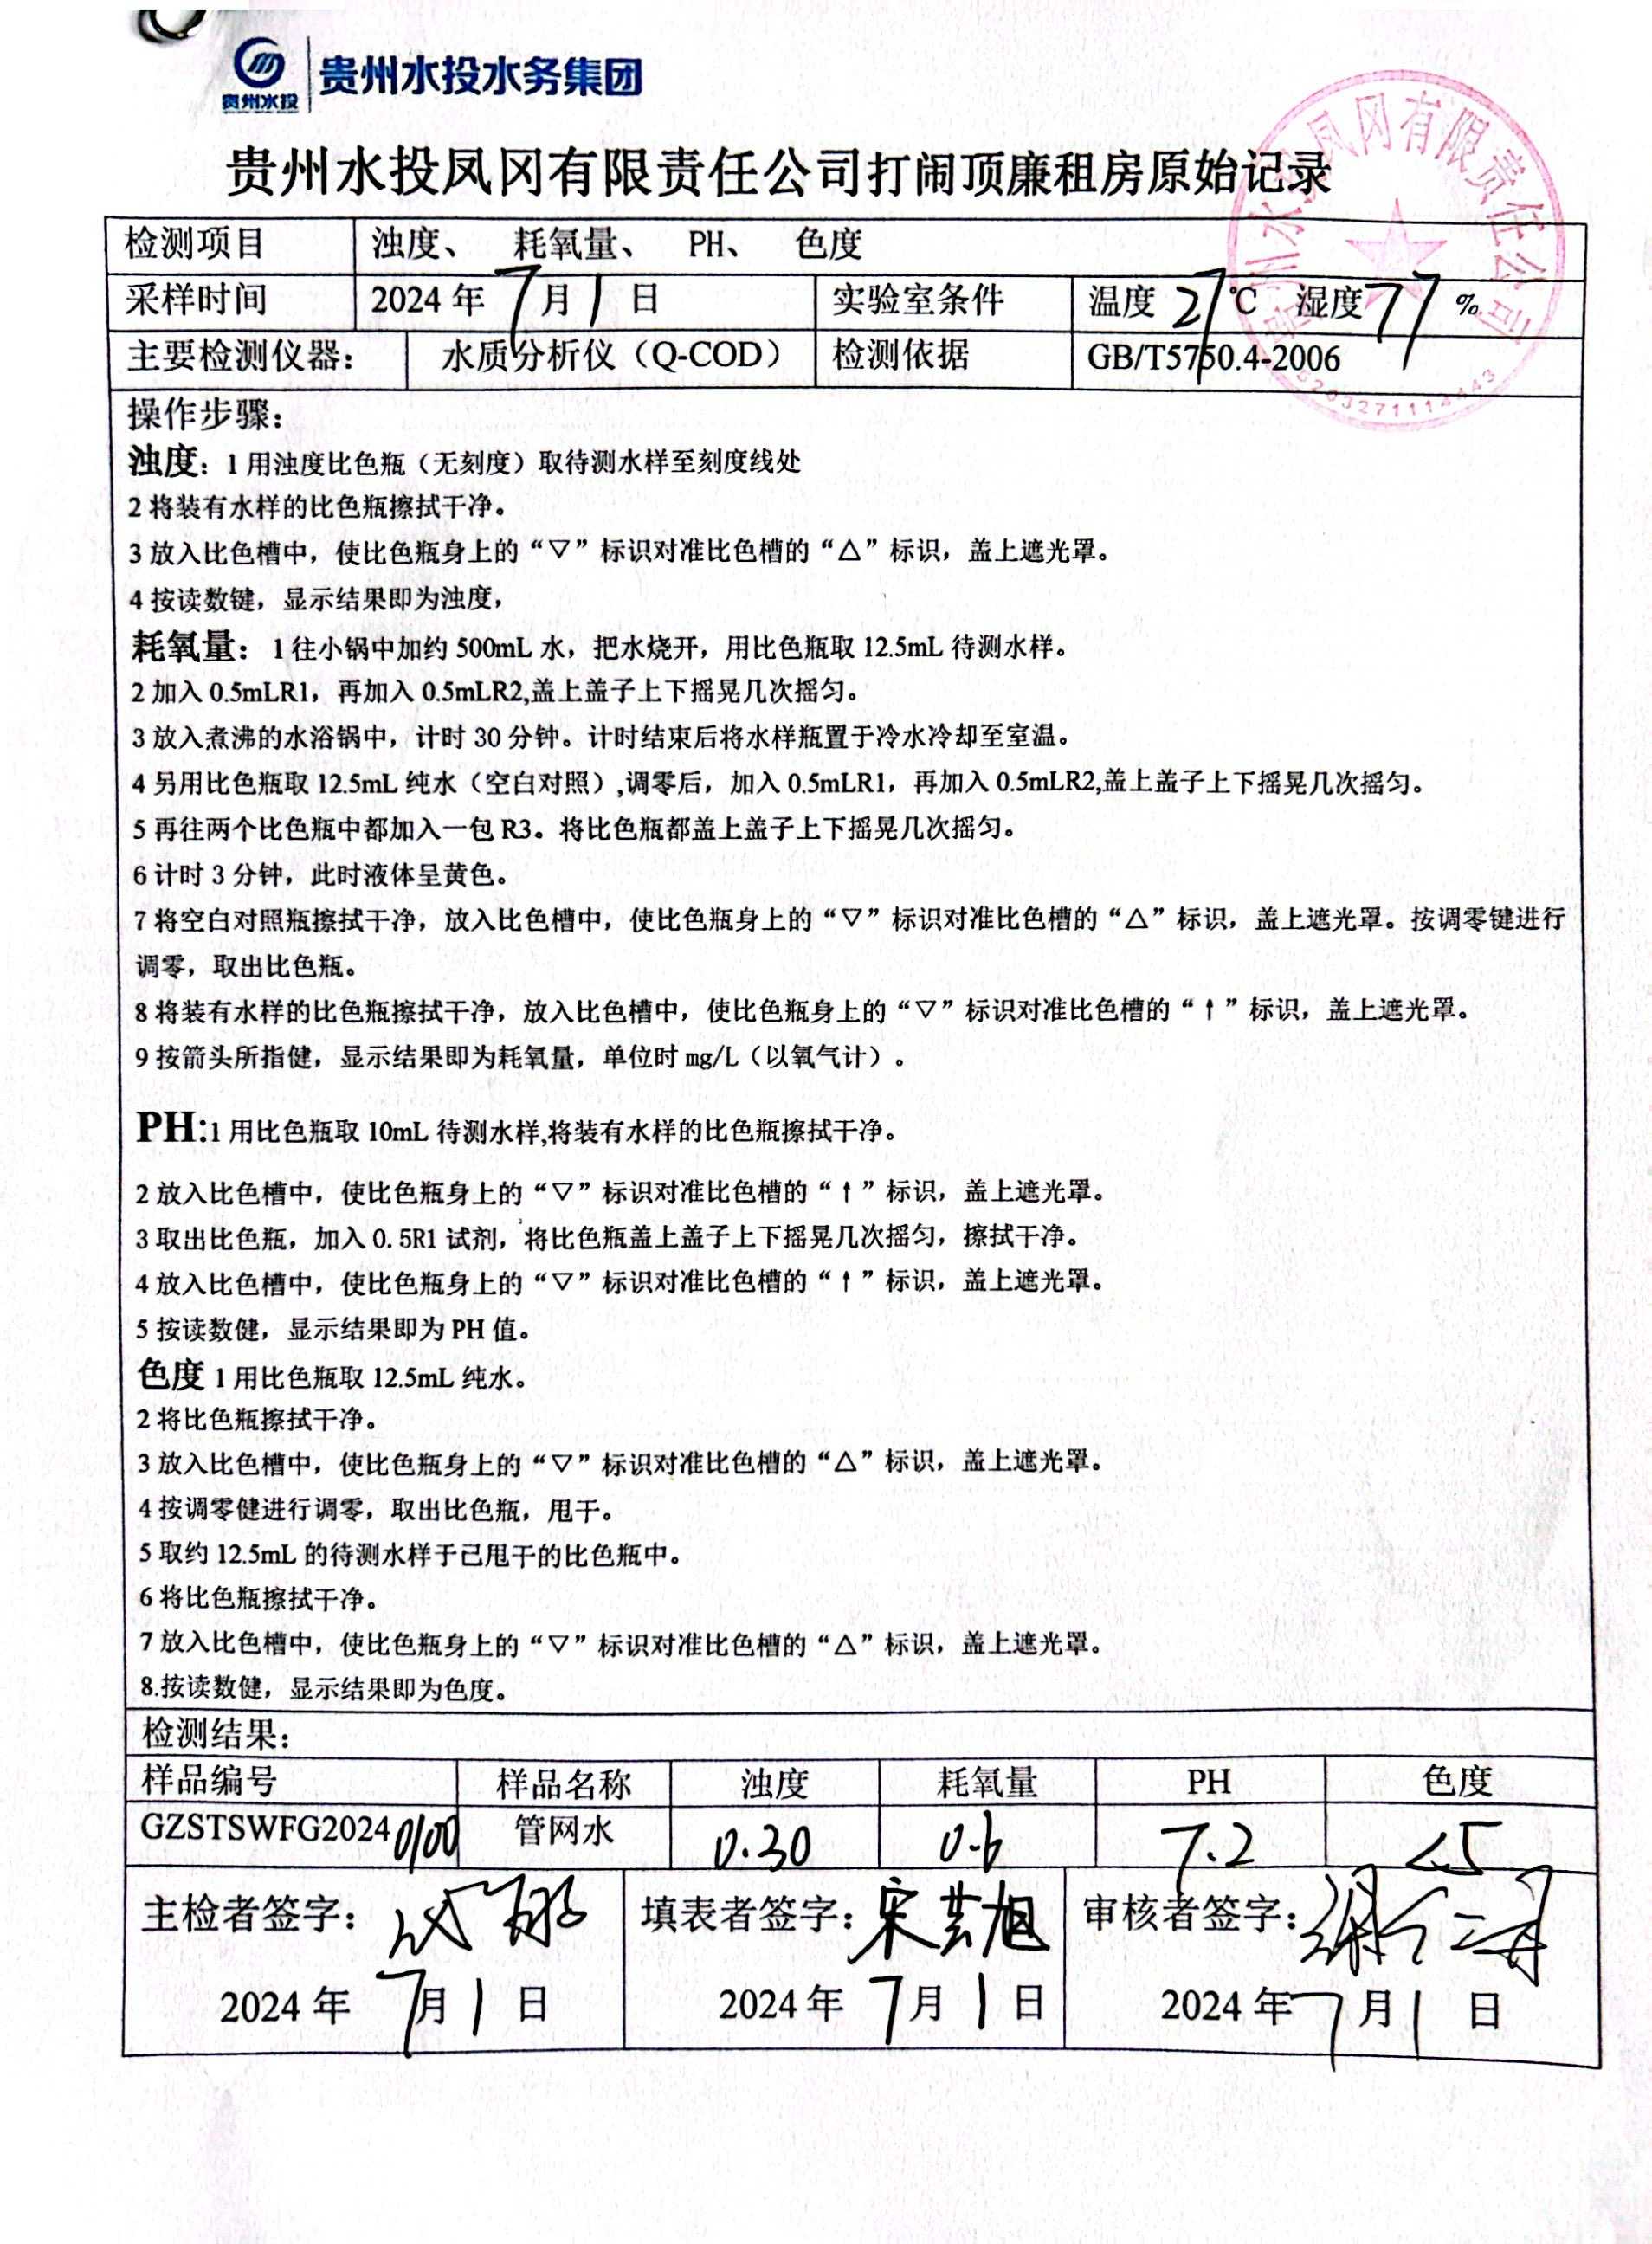 贵州水投 贵州水投水务集团
贵州水投凤冈有限责任公司打闹顶廉租房原始记录
检测项目 浊度、 耗氧量、 PH、 色度
采样时间 2024年7月1日 实验室条件 温度27℃ 湿度77%
主要检测仪器： 水质分析仪（Q-COD） 检测依据 GB/T5750.4-2006
操作步骤：
浊度：1 用浊度比色瓶（无刻度）取待测水样至刻度线处
2 将装有水样的比色瓶擦拭干净。
3 放入比色槽中，使比色瓶身上的“▽”标识对准比色槽的“△”标识，盖上遮光罩。
4 按读数键，显示结果即为浊度，
耗氧量：1 往小锅中加约 500mL 水，把水烧开，用比色瓶取 12.5mL 待测水样。
2 加入 0.5mLR1，再加入 0.5mLR2,盖上盖子上下摇晃几次摇匀。
3 放入煮沸的水浴锅中，计时 30 分钟。计时结束后将水样瓶置于冷水冷却至室温。
4 另用比色瓶取 12.5mL 纯水（空白对照）,调零后，加入 0.5mLR1，再加入 0.5mLR2,盖上盖子上下摇晃几次摇匀。
5 再往两个比色瓶中都加入一包 R3。将比色瓶都盖上盖子上下摇晃几次摇匀。
6 计时 3 分钟，此时液体呈黄色。
7 将空白对照瓶擦拭干净，放入比色槽中，使比色瓶身上的“▽”标识对准比色槽的“△”标识，盖上遮光罩。按调零键进行
调零，取出比色瓶。
8 将装有水样的比色瓶擦拭干净，放入比色槽中，使比色瓶身上的“▽”标识对准比色槽的“↑”标识，盖上遮光罩。
9 按箭头所指健，显示结果即为耗氧量，单位时 mg/L（以氧气计）。
PH:1 用比色瓶取 10mL 待测水样,将装有水样的比色瓶擦拭干净。
2 放入比色槽中，使比色瓶身上的“▽”标识对准比色槽的“↑”标识，盖上遮光罩。
3 取出比色瓶，加入 0.5R1 试剂，将比色瓶盖上盖子上下摇晃几次摇匀，擦拭干净。
4 放入比色槽中，使比色瓶身上的“▽”标识对准比色槽的“↑”标识，盖上遮光罩。
5 按读数健，显示结果即为 PH 值。
色度 1 用比色瓶取 12.5mL 纯水。
2 将比色瓶擦拭干净。
3 放入比色槽中，使比色瓶身上的“▽”标识对准比色槽的“△”标识，盖上遮光罩。
4 按调零健进行调零，取出比色瓶，甩干。
5 取约 12.5mL 的待测水样于已甩干的比色瓶中。
6 将比色瓶擦拭干净。
7 放入比色槽中，使比色瓶身上的“▽”标识对准比色槽的“△”标识，盖上遮光罩。
8.按读数健，显示结果即为色度。
检测结果：
样品编号 样品名称 浊度 耗氧量 PH 色度
GZSTSWFG20240100 管网水 0.30 0.6 7.2 <5
主检者签字： 填表者签字：宋芸旭 审核者签字：
2024年7月1日 2024年7月1日 2024年7月1日